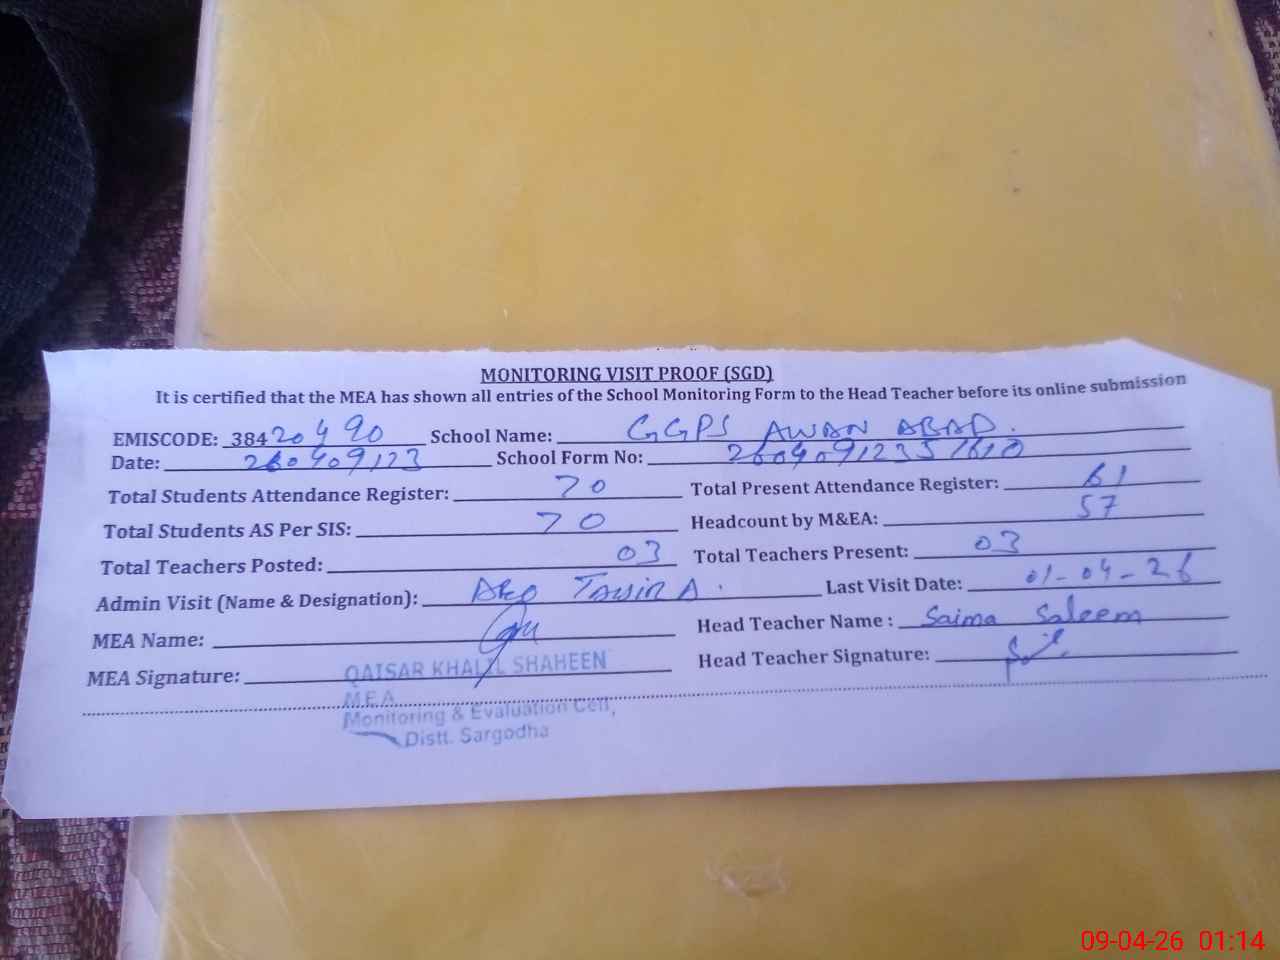 MONITORING VISIT PROOF (SGD)
It is certified that the MEA has shown all entries of the School Monitoring Form to the Head Teacher before its online submission
EMISCODE: 38420490 School Name: GGPS AWAN ABAD.
Date: 260409123 School Form No: 2604091235
Total Students Attendance Register: 70 Total Present Attendance Register: 61
Total Students AS Per SIS: 70 Headcount by M&EA: 57
Total Teachers Posted: 03 Total Teachers Present: 03
Admin Visit (Name & Designation): Last Visit Date: 01-04-26
MEA Name: Head Teacher Name : Saima Saleem
MEA Signature: Head Teacher Signature:
QAISAR KHALIL SHAHEEN
M.E.A
Monitoring & Evaluation Cell,
Distt. Sargodha
09-04-26 01:14